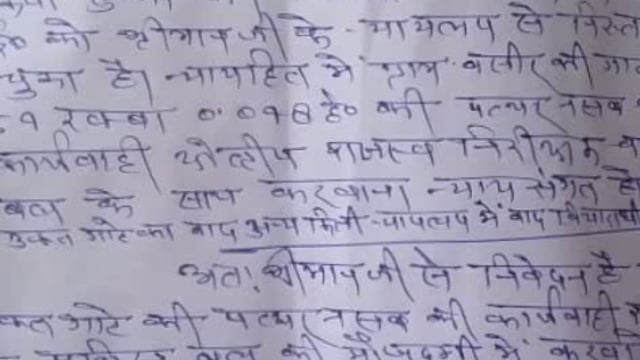 को श्रीमान जी के न्यायलय से
चुका है। न्यायहित में ग्राम वसीर की
१ रकबा ०.०१8 हे० की पत्थर नसब
कार्यवाही क्षेत्रीय राजस्व निरीक्षक
बल के साथ करवाना न्याय संगत है
उक्त गाटे का वाद अन्य किसी न्यायलय में वाद
अतः श्रीमान जी से निवेदन है
गाटे की पत्थर नसब की कार्यवाही
बल की मौजूदगी में